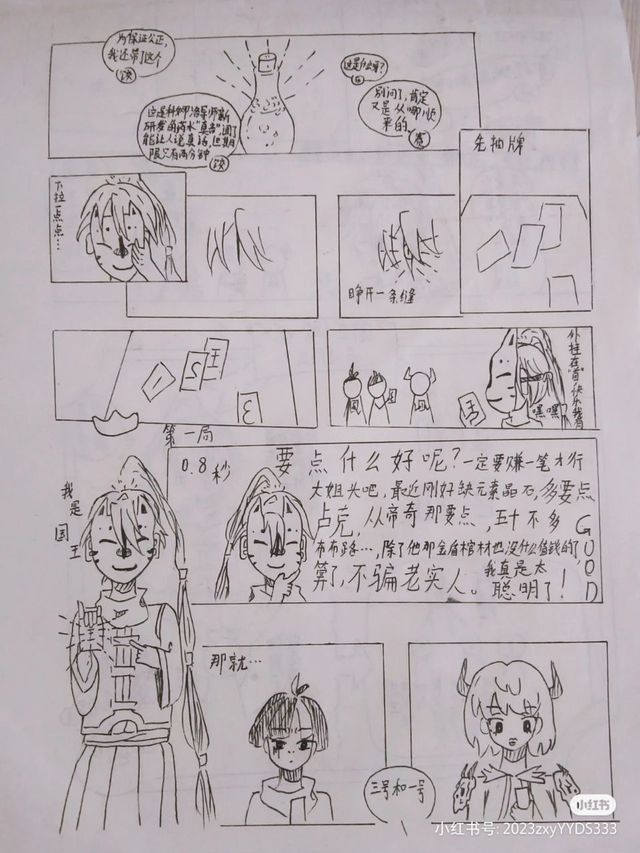 为保证公正,
我还带了这个
这是什么呀?
别问了,肯定
又是从哪顺
来的
发的药水"真言"喝了
能让人说真话,但期
限只有两分钟
先抽牌
下拉一点点…
睁开一条缝
王
5
1
3
国
外挂在
嘿嘿
第一局
我是国王
0.8秒
要点什么好呢?一定要赚一笔才行
大姐头吧,最近刚好缺元素晶石,多要点
卢克,从帝奇那要点,五十不多
布布路…,除了他那金盾棺材也没什么值钱的了,
算了,不骗老实人。
我真是太
聪明了!
GOOD
那就…
三号和一号
小红书
小红书号: 2023zxyYYDS333